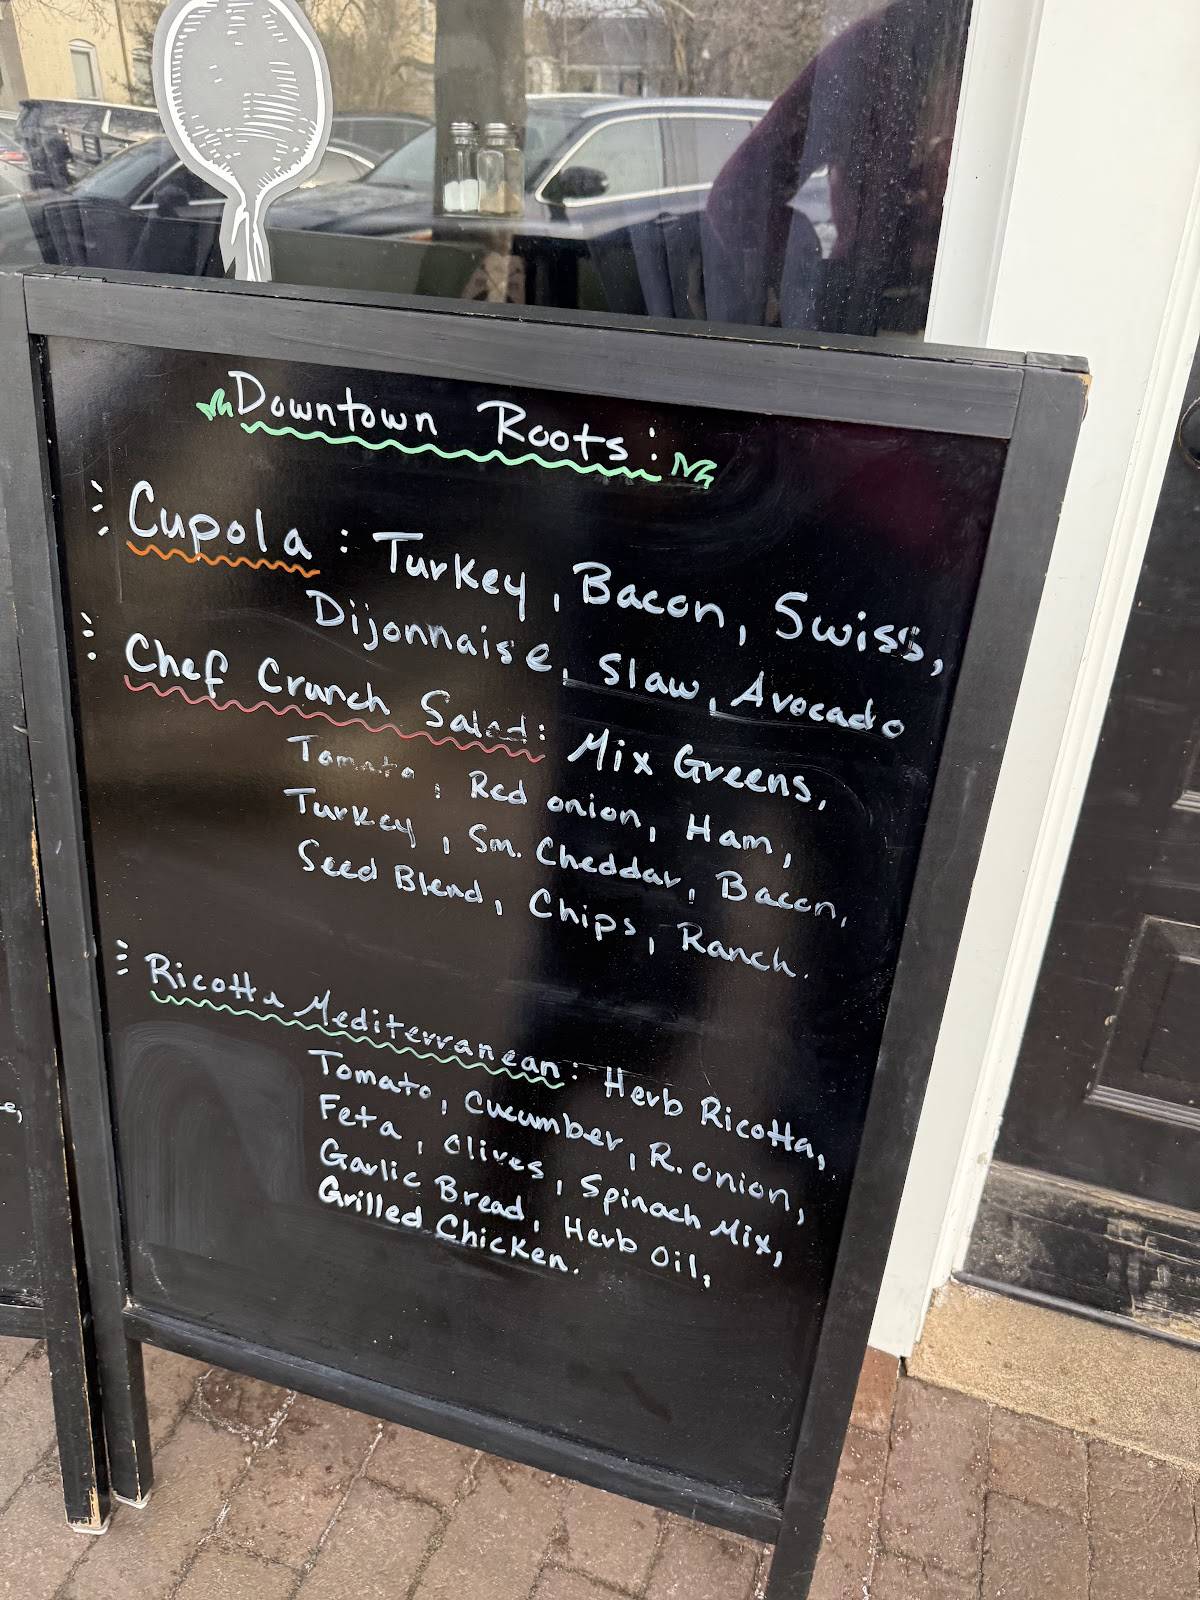 Downtown Roots:
Cupola: Turkey, Bacon, Swiss,
Dijonnaise, Slaw, Avocado
Chef Crunch Salad: Mix Greens,
Tomato, Red onion, Ham,
Turkey, Sm. Cheddar, Bacon,
Seed Blend, Chips, Ranch.
Ricotta Mediterranean: Herb Ricotta,
Tomato, Cucumber, R. onion,
Feta, olives, Spinach Mix,
Garlic Bread, Herb Oil,
Grilled Chicken.